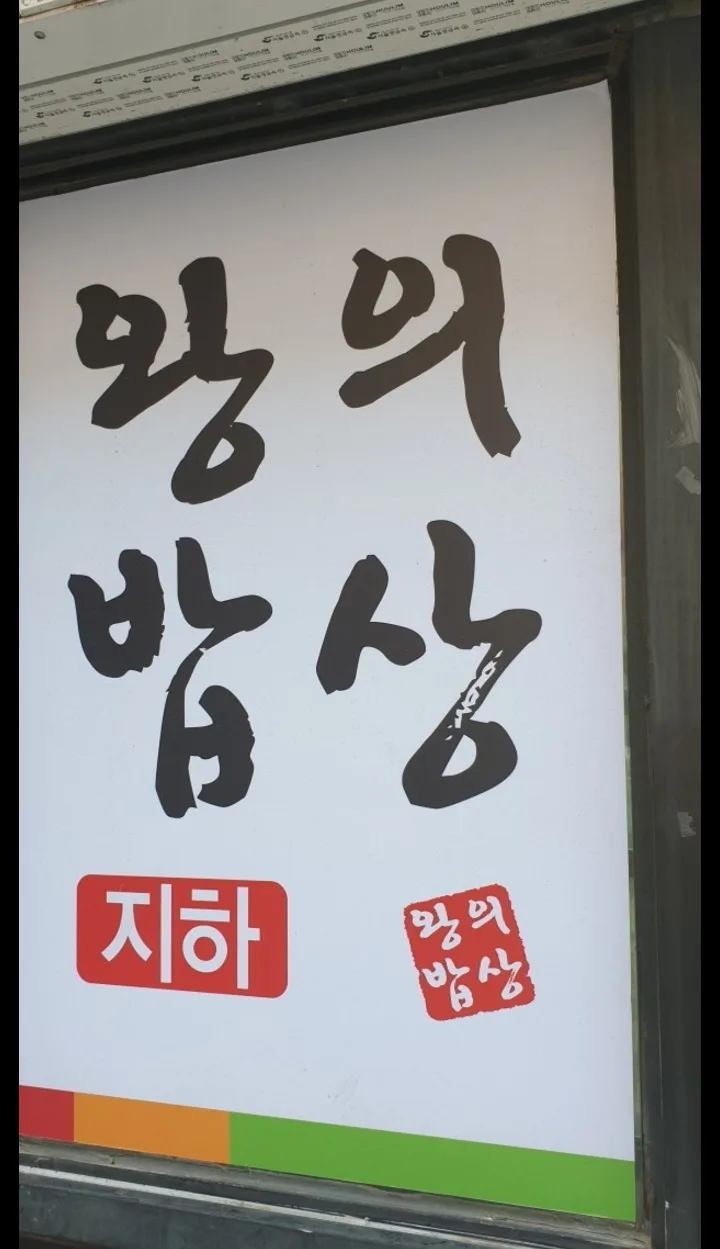 왕의
밥상
지하
왕의
밥상